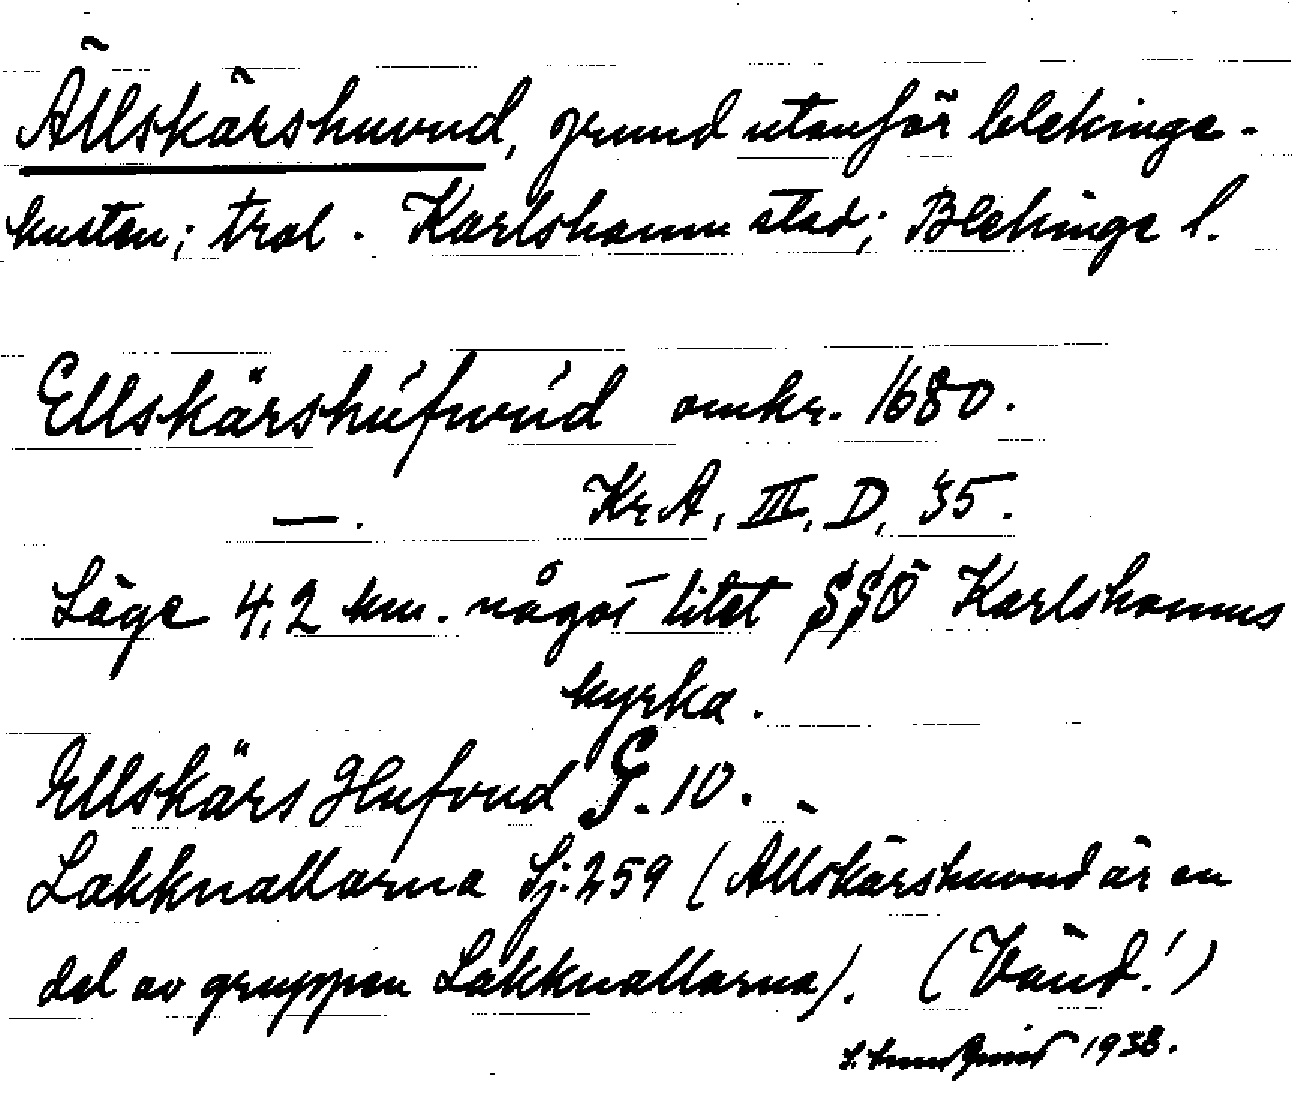 Ällskärshuvud, grund utanför blekinge-
kusten; trol. Karlshamn stad; Blekinge l.
Ellskärshúfwúd omkr. 1680.
—. KrA, III, D, 35.
Läge 4,2 km. något litet SSÖ Karlshamns
kyrka.
Ellskärs Hufvud G. 10.
Lakknallarna Sj. 259 (Ällskärshuvud är en
del av gruppen Lakknallarna). (Vänd!)
1938.